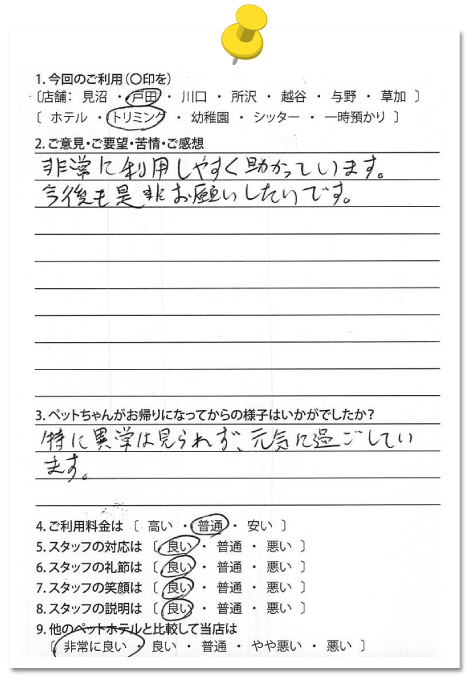 1. 今回のご利用(〇印を)
〔店舗： 見沼 ・ 戸田 ・ 川口 ・ 所沢 ・ 越谷 ・ 与野 ・ 草加 〕
〔 ホテル ・ トリミング ・ 幼稚園 ・ シッター ・ 一時預かり 〕
2. ご意見・ご要望・苦情・ご感想
非常に利用しやすく助かっています。
今後も是非お願いしたいです。
3. ペットちゃんがお帰りになってからの様子はいかがでしたか?
特に異常は見られず、元気に過ごしてい
ます。
4. ご利用料金は 〔 高い ・ 普通 ・ 安い 〕
5. スタッフの対応は 〔 良い ・ 普通 ・ 悪い 〕
6. スタッフの礼節は 〔 良い ・ 普通 ・ 悪い 〕
7. スタッフの笑顔は 〔 良い ・ 普通 ・ 悪い 〕
8. スタッフの説明は 〔 良い ・ 普通 ・ 悪い 〕
9. 他のペットホテルと比較して当店は
〔 非常に良い ・ 良い ・ 普通 ・ やや悪い ・ 悪い 〕